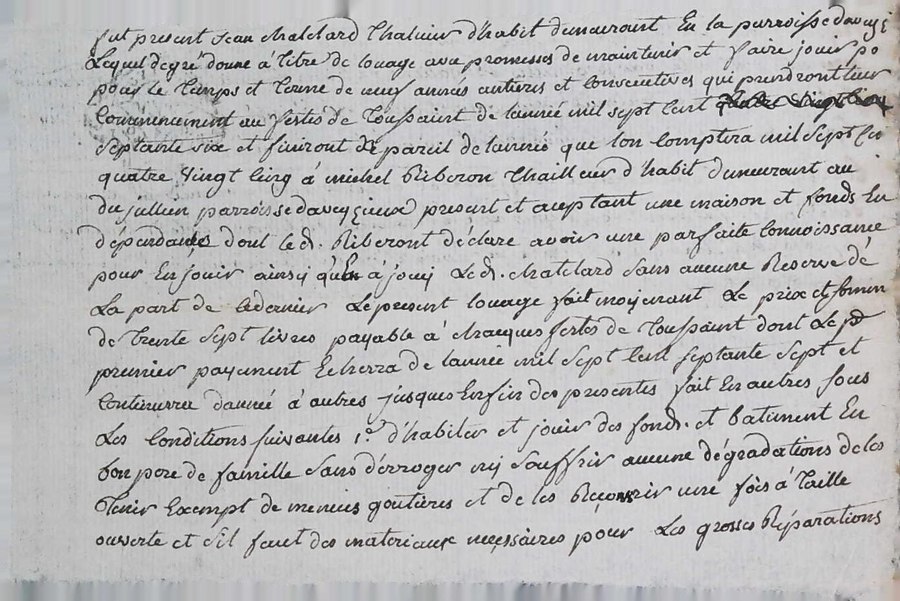 fut present Jean chatelard thalieur d'habit demeurant En la parroisse daveysi
Lequel de gré donne à titre de louage avec promesses de maintenir et faire jouir po
pour le temps et terme de neuf années entieres et consecutives qui prendront leur
Commencement au festes de toussaint de lannée mil sept cent
septante six et finiront de pareil de lannée que lon comptera mil sept ce
quatre vingt cinq à michel Riberon thailleur d'habit demeurant au
du jullien parroisse daveyzieux present et aceptant une maison et fonds En
dépendants dont le d. Riberont déclare avoir une parfaite connoissance
pour En jouir ainsy qu'En à jouy Le d. chatelard sans aucune Reserve de
La part de ce dernier Le present louage fait moyenant Le prix et somme
de trente sept livres payable à chaques festes de toussaint dont Le pd
premier payement Echerra de lannée mil sept cent septante sept et
Continuera dannée à autres jusques En fin des presentes fait En autres sous
Les Conditions suivantes 1.º d'habiter et jouir des fonds et batiment En
bon pere de famille sans dérroger ny souffrir aucune dégradations de les
tenir Exempt de menues goutières et de les Recouvrir une fois à taille
ouverte et s'il faut des materiaux necessaires pour Les grosses Réparations